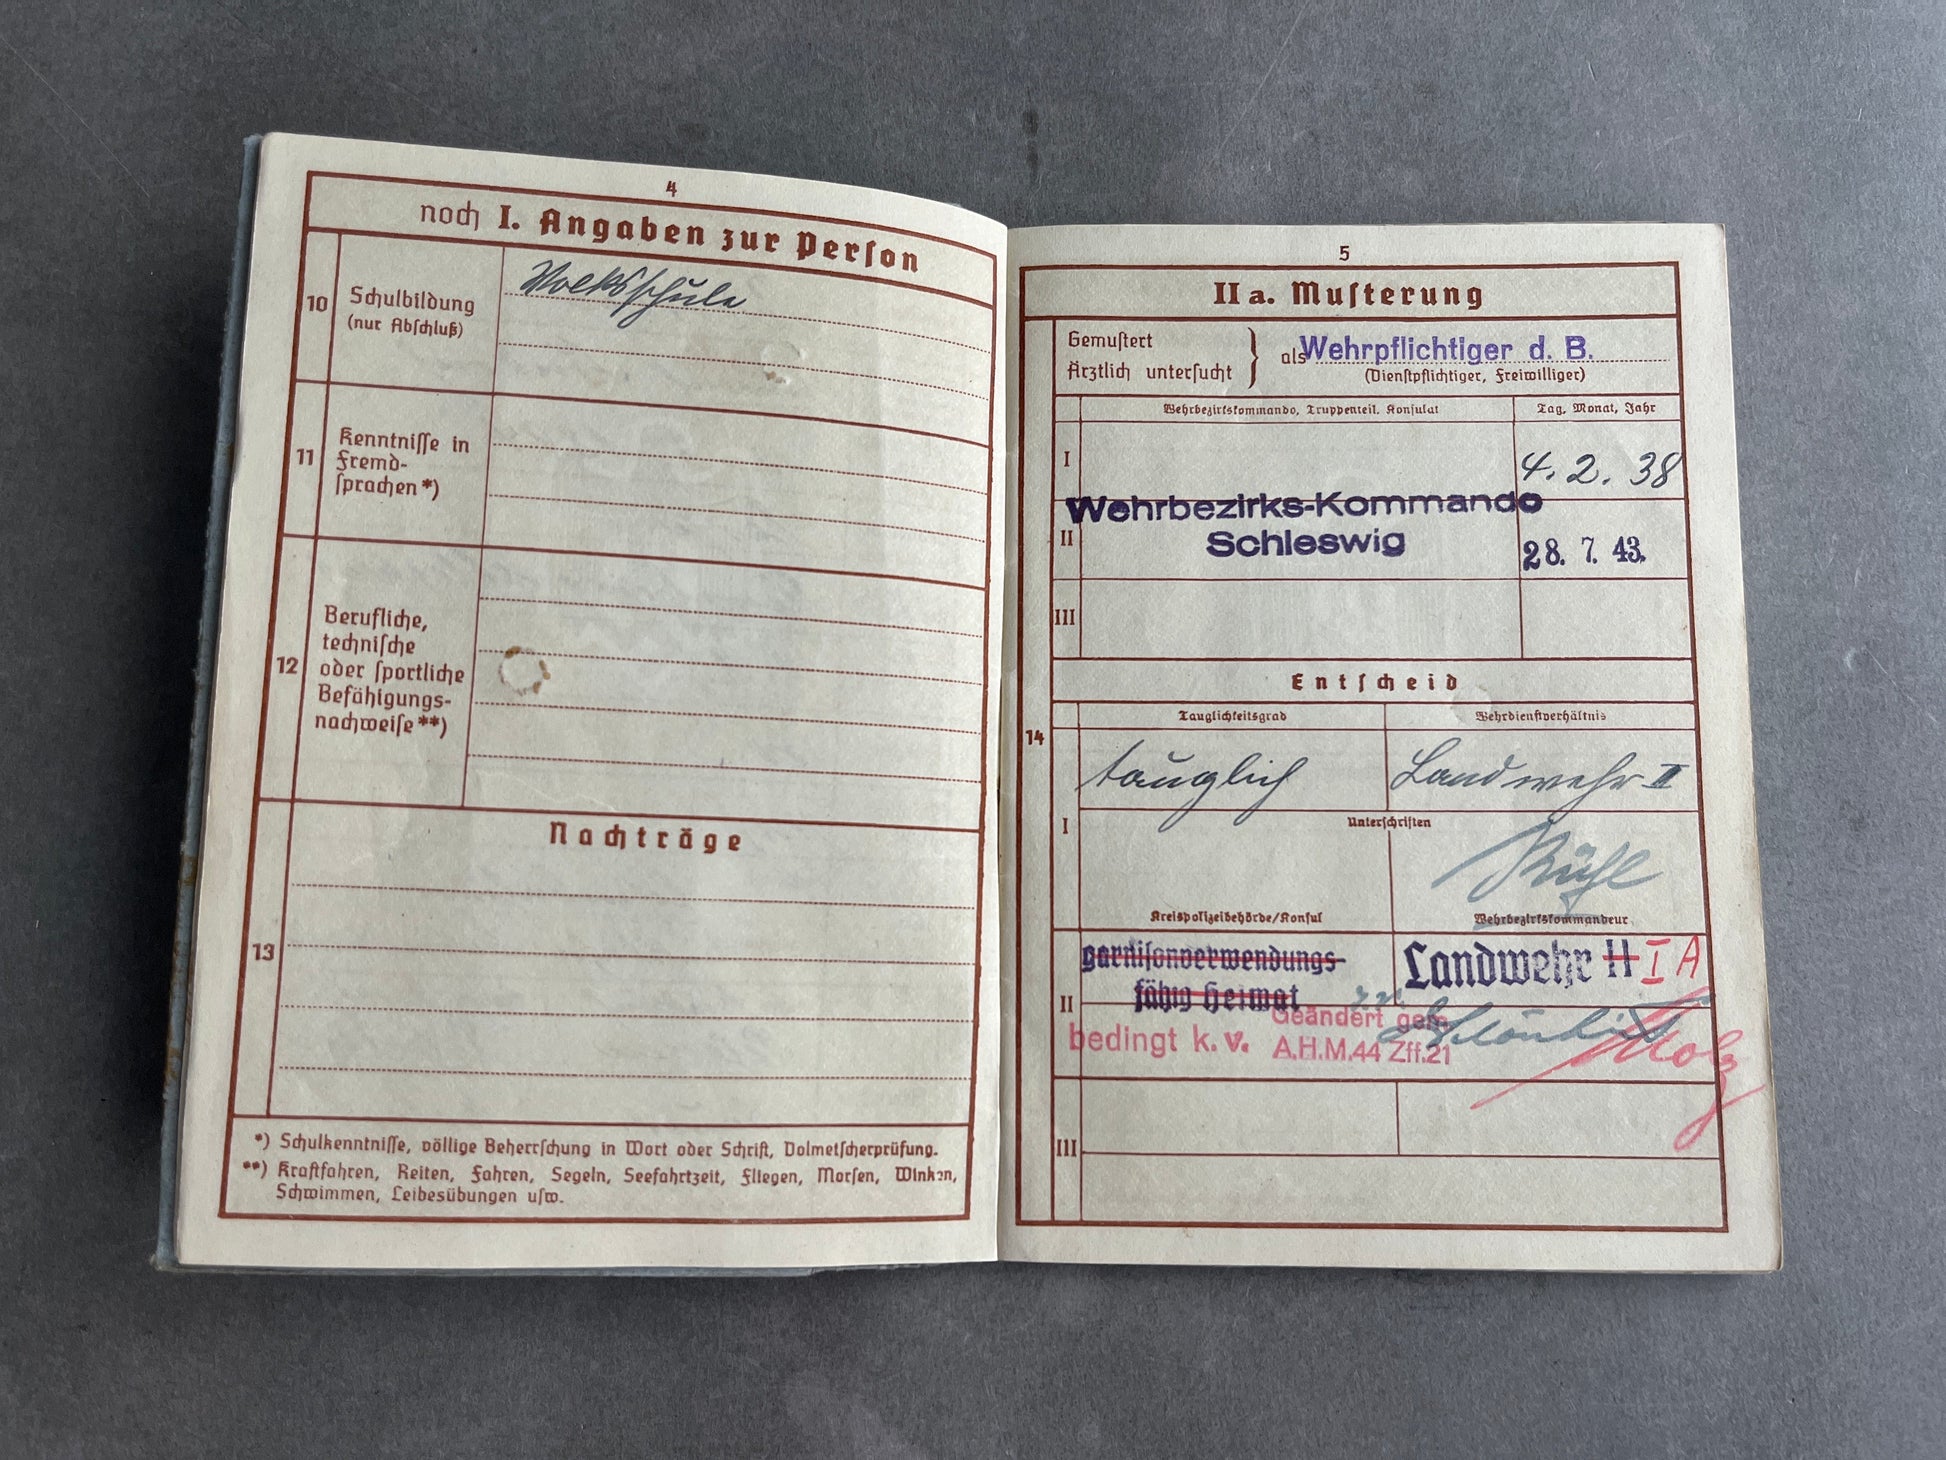 4
noch I. Angaben zur Person
10
Schulbildung
(nur Abschluß)
Volksschule
11
Kenntnisse in
Fremd-
sprachen *)
12
Berufliche,
technische
oder sportliche
Befähigungs-
nachweise **)
Nachträge
13
*) Schulkenntnisse, völlige Beherrschung in Wort oder Schrift, Dolmetscherprüfung.
**) Kraftfahren, Reiten, Fahren, Segeln, Seefahrtzeit, Fliegen, Morsen, Winken,
Schwimmen, Leibesübungen usw.
5
II a. Musterung
Gemustert
Ärztlich untersucht
als Wehrpflichtiger d. B.
(Dienstpflichtiger, Freiwilliger)
Wehrbezirkskommando, Truppenteil, Konsulat
Tag, Monat, Jahr
I
4. 2. 38
Wehrbezirks-Kommando
Schleswig
II
28. 7. 43.
III
Entscheid
Tauglichkeitsgrad
Wehrdienstverhältnis
14
tauglich
Landwehr II
I
Unterschriften
Rühl
Kreispolizeibehörde/Konsul
Wehrbezirkskommandeur
garnisonverwendungs-
fähig Heimat
Landwehr II I A
II
bedingt k. v.
Geändert gem.
A.H.M.44 Zff.21
III